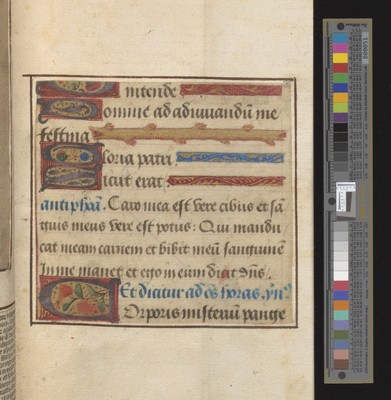 intende
Domine ad adiuuandū me
festina
Gloria patri
Sicut erat.
antiphā. Caro mea est vere cibus et sā
guis meus vere est potus: Qui mandu
cat meam carnem et bibit meū sanguinē
In me manet et ego in eum dicit dn̄s.
Et dicitur ad oēs horas. yn⁹.
Orporis misteriū pange